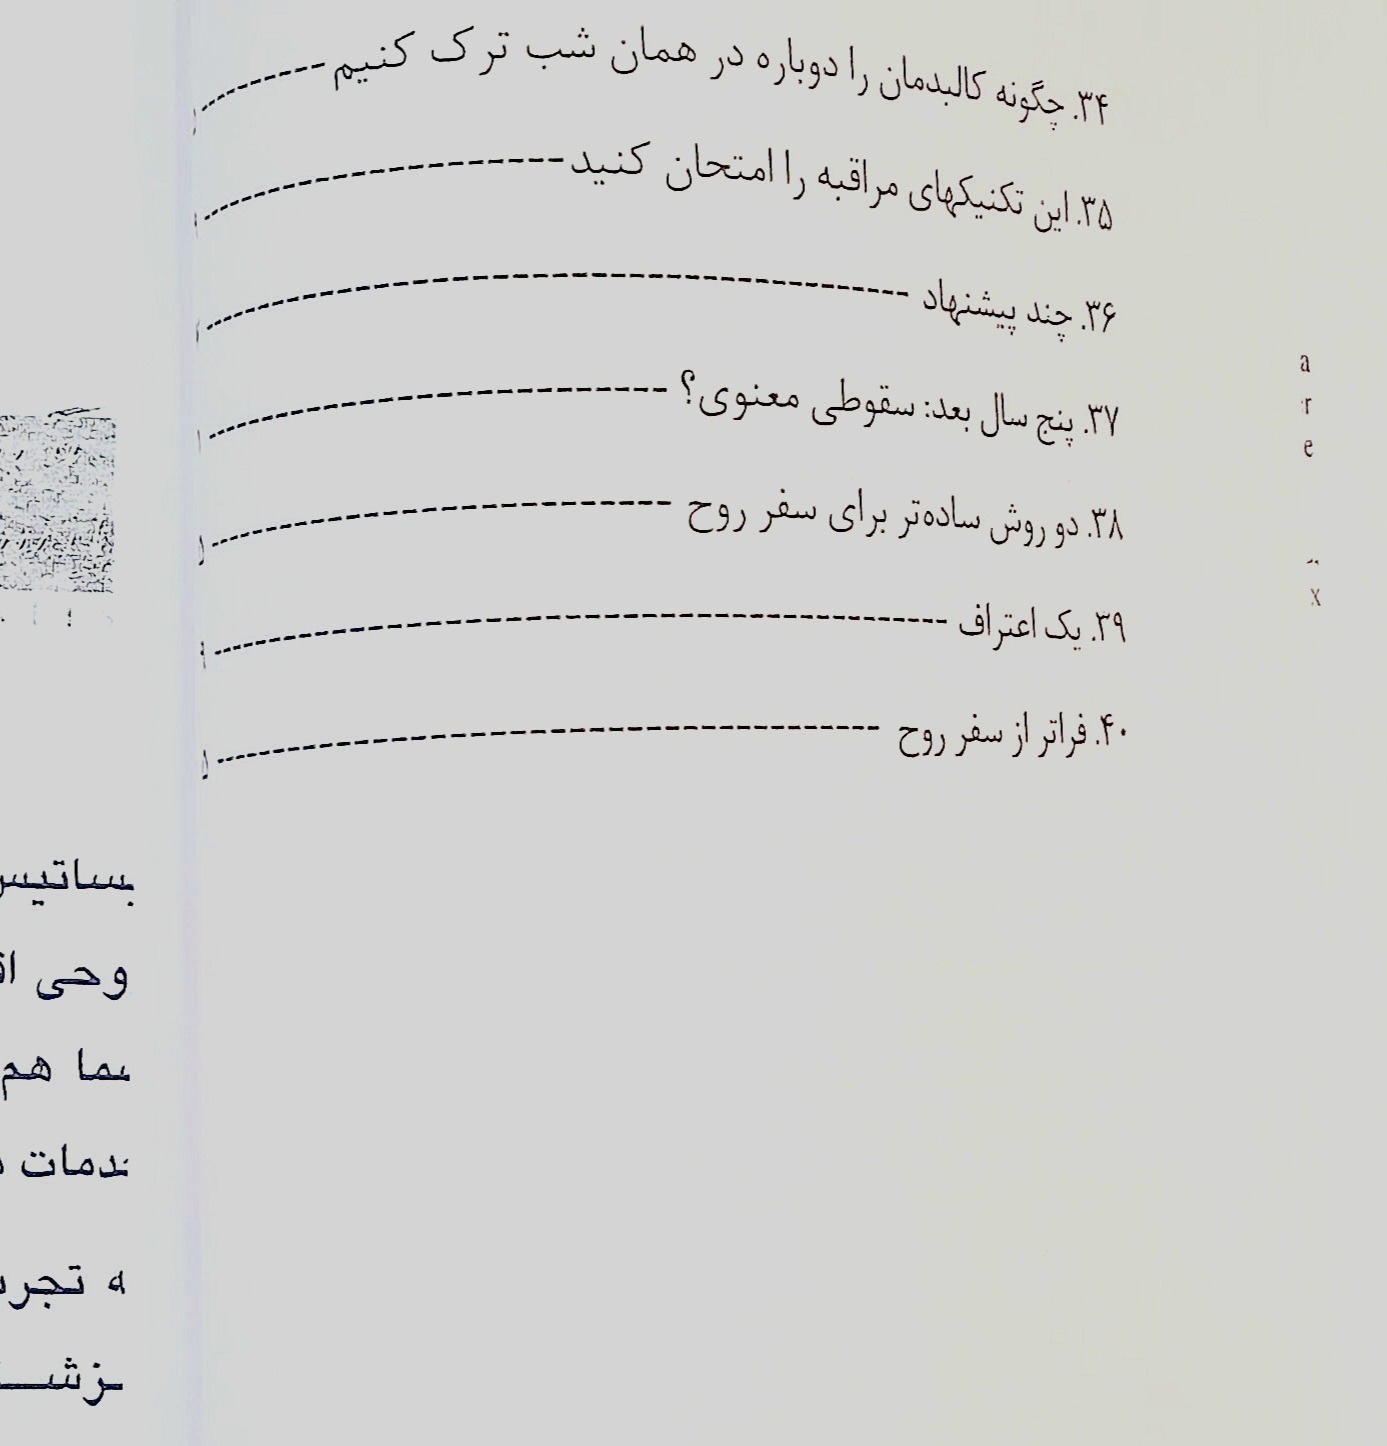 ۳۴. چگونه کالبدمان را دوباره در همان شب ترک کنیم
۳۵. این تکنیکهای مراقبه را امتحان کنید
۳۶. چند پیشنهاد
۳۷. پنج سال بعد: سقوطی معنوی؟
۳۸. دو روش ساده‌تر برای سفر روح
۳۹. یک اعتراف
۴۰. فراتر از سفر روح